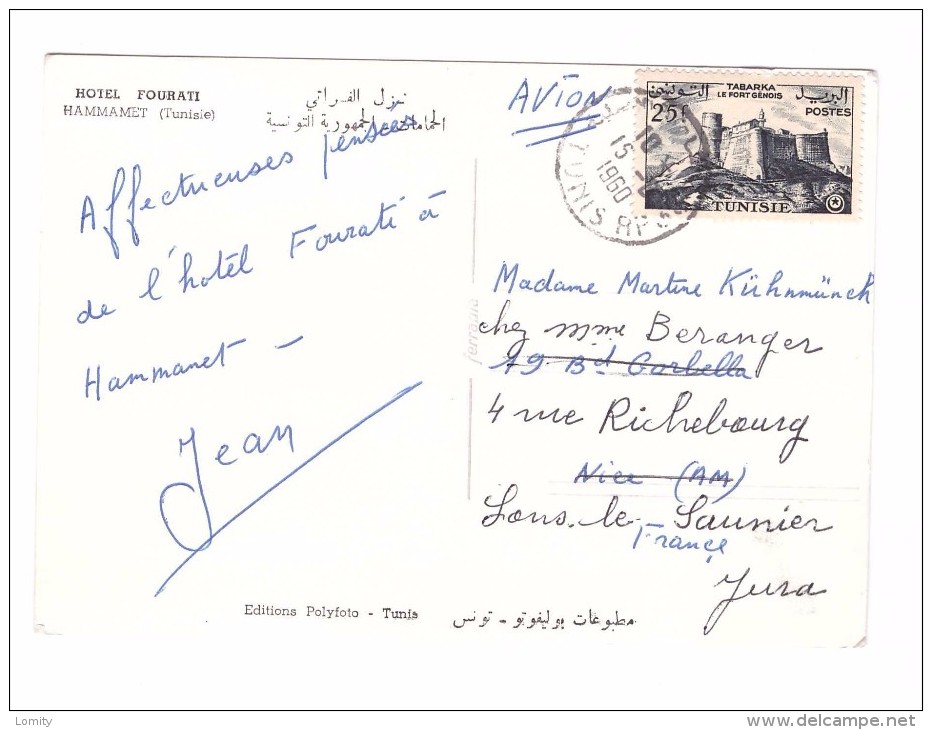 HOTEL FOURATI
HAMMAMET (Tunisie)
نزل الفراتي
الحمامات - الجمهورية التونسية
AVION
التونسية
البريد
TABARKA
LE FORT GÉNOIS
25f
POSTES
TUNISIE
TUNIS RP
18
15
1960
Affectueuses pensées
de l'hotel Fourati à
Hammamet -
Jean
Madame Martine Kühnmünch
chez Mme Beranger
19 Bd Gorbella
4 rue Richebourg
Nice (AM)
Lons-le-Saunier
France
Jura
ferrania
Editions Polyfoto - Tunis
مطبوعات بوليفوتو - تونس
Lomity
www.delcampe.net